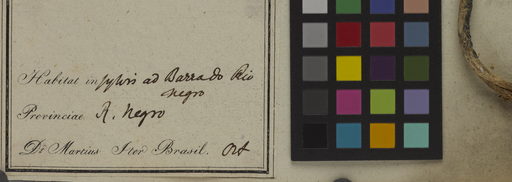 Habitat in sylvis ad Barra do Rio
negro
Provinciae R. Negro
Dr Martius Iter Brasil. Oct